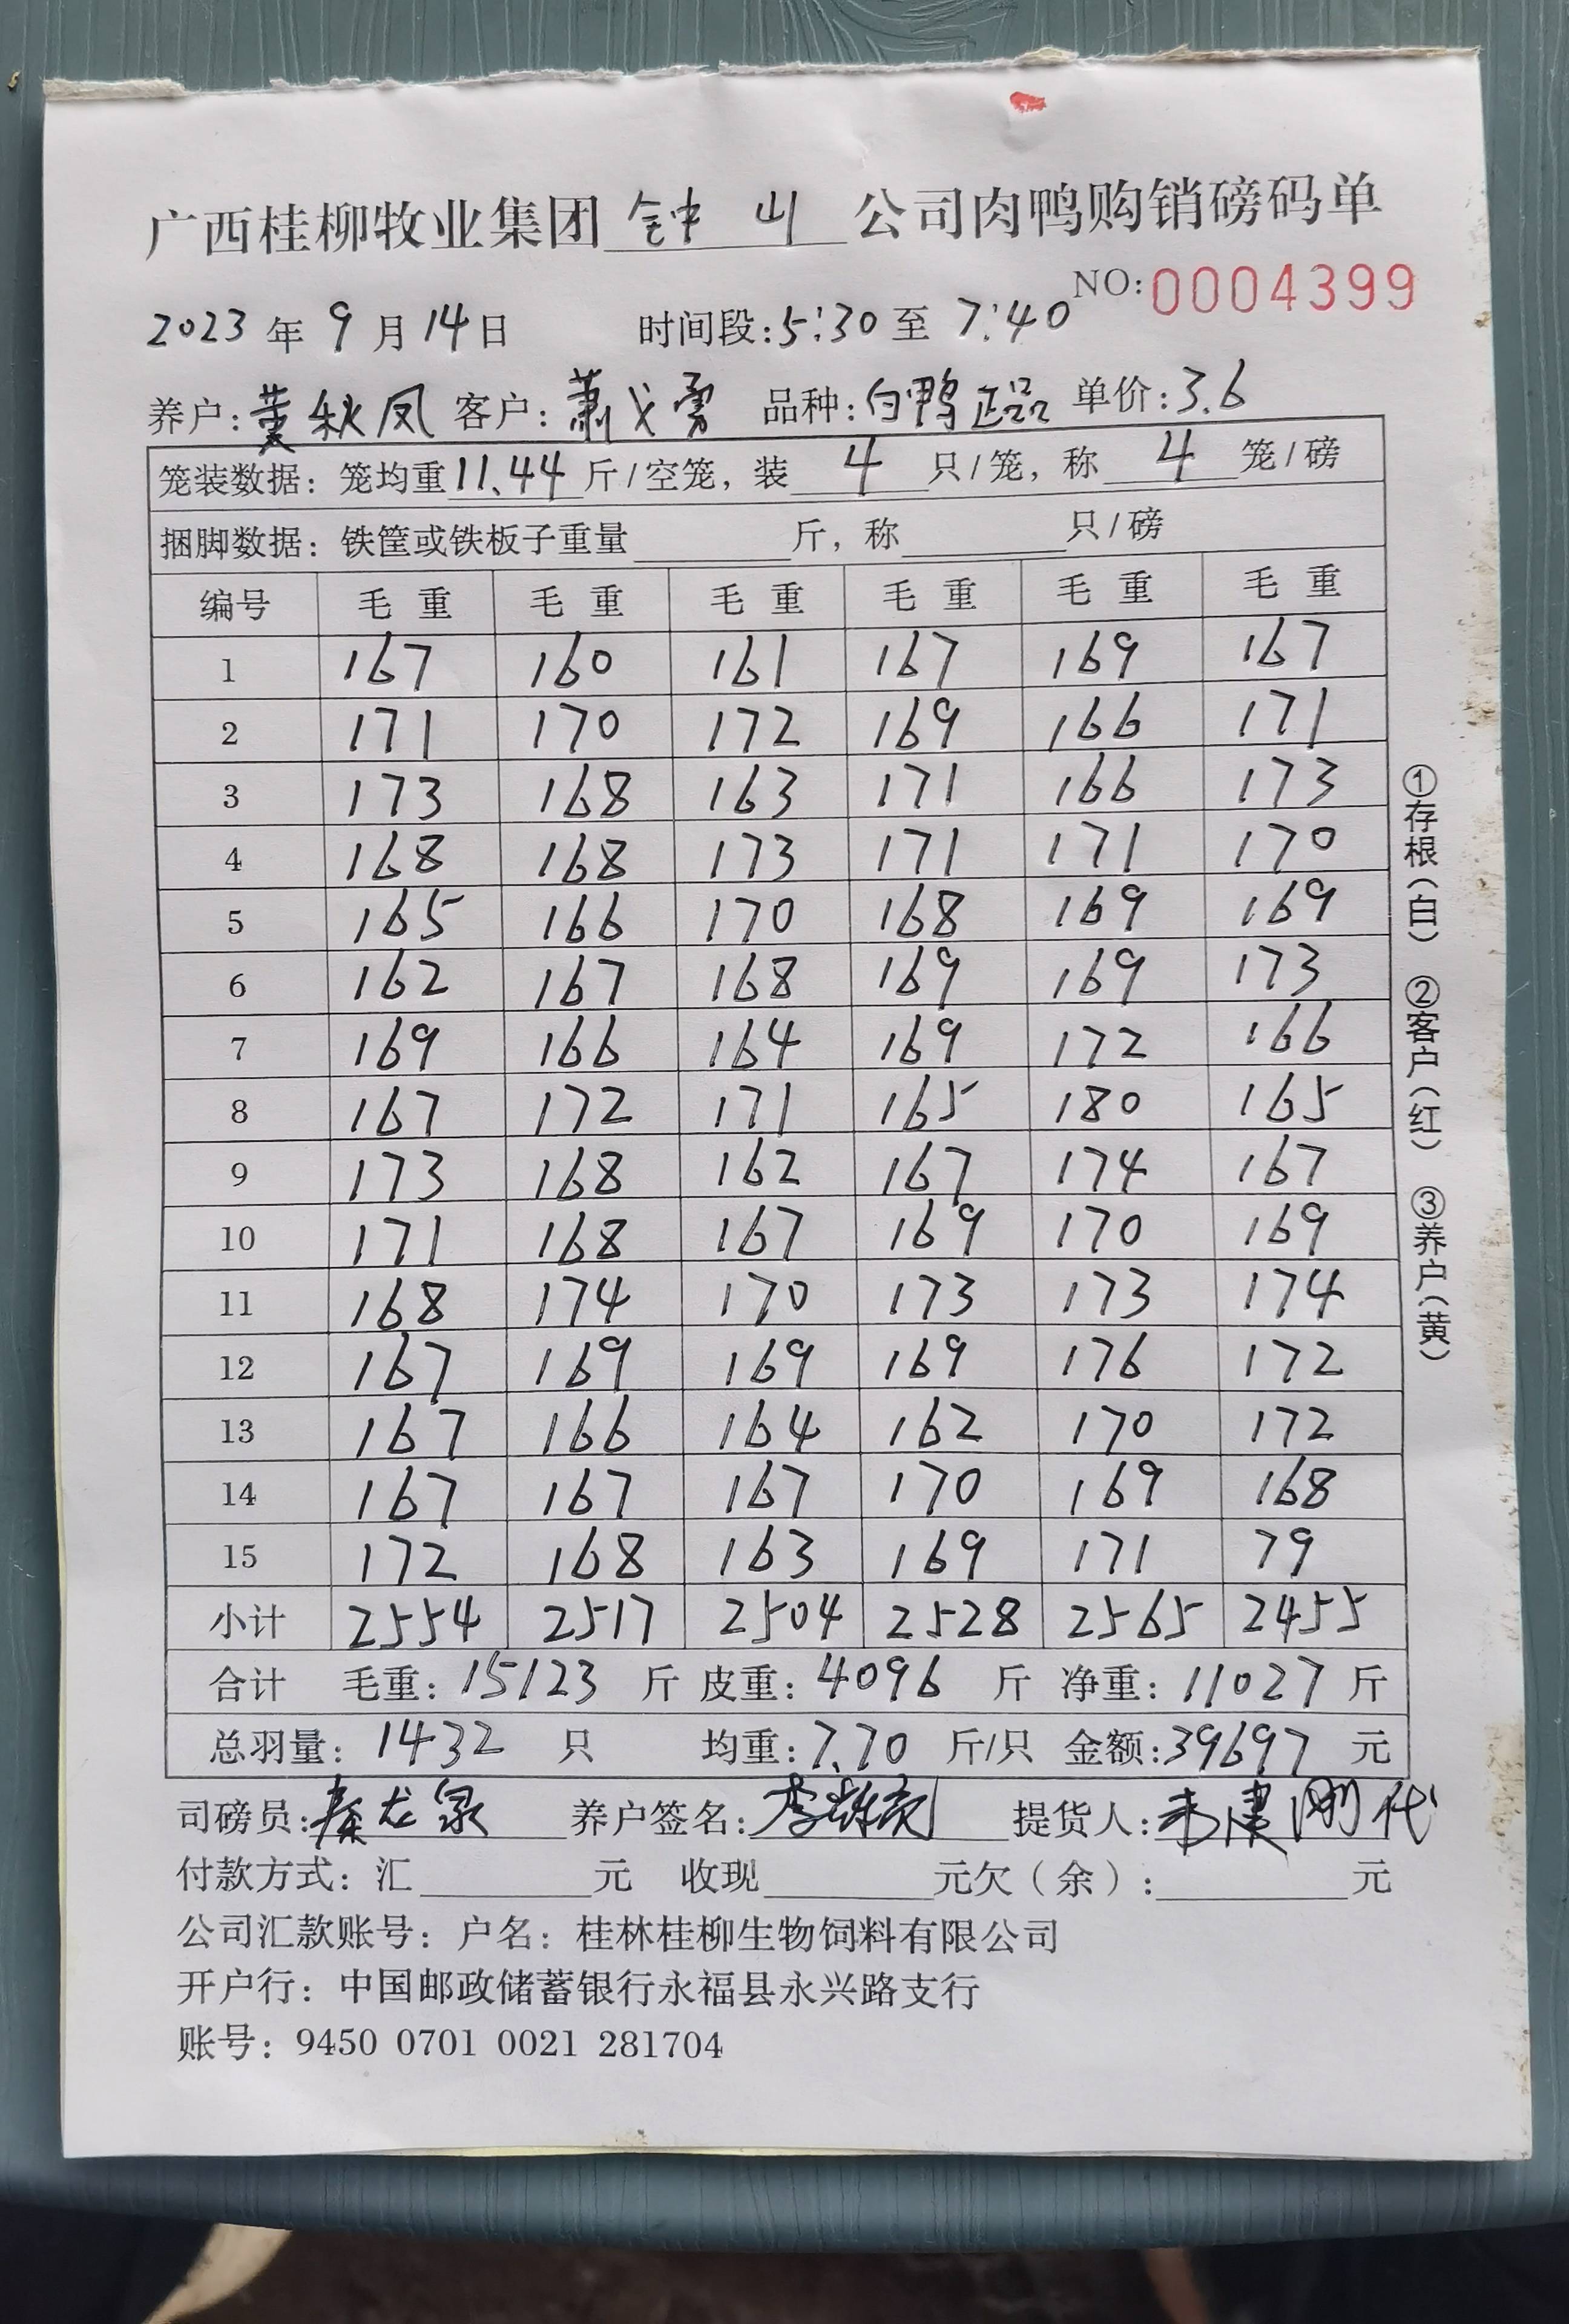 广西桂柳牧业集团 钟山 公司肉鸭购销磅码单
NO:0004399
2023 年 9 月 14 日 时间段:5:30 至 7:40
养户:黄秋凤 客户:萧戈勇 品种:白鸭正品 单价:3.6
笼装数据: 笼均重 11.44 斤/空笼, 装 4 只/笼, 称 4 笼/磅
捆脚数据: 铁筐或铁板子重量 斤, 称 只/磅
编号 毛重 毛重 毛重 毛重 毛重 毛重
1 167 160 161 167 169 167
2 171 170 172 169 166 171
3 173 168 163 171 166 173
4 168 168 173 171 171 170
5 165 166 170 168 169 169
6 162 167 168 169 169 173
7 169 166 164 169 172 166
8 167 172 171 165 180 165
9 173 168 162 167 174 167
10 171 168 167 169 170 169
11 168 174 170 173 173 174
12 167 169 169 169 176 172
13 167 166 164 162 170 172
14 167 167 167 170 169 168
15 172 168 163 169 171 79
小计 2554 2517 2504 2528 2565 2455
合计 毛重: 15123 斤 皮重: 4096 斤 净重: 11027 斤
总羽量: 1432 只 均重: 7.70 斤/只 金额: 39697 元
司磅员:秦龙泉 养户签名: 提货人: 代
付款方式: 汇 元 收现 元欠(余): 元
公司汇款账号: 户名: 桂林桂柳生物饲料有限公司
开户行: 中国邮政储蓄银行永福县永兴路支行
账号: 9450 0701 0021 281704
①存根(白) ②客户(红) ③养户(黄)